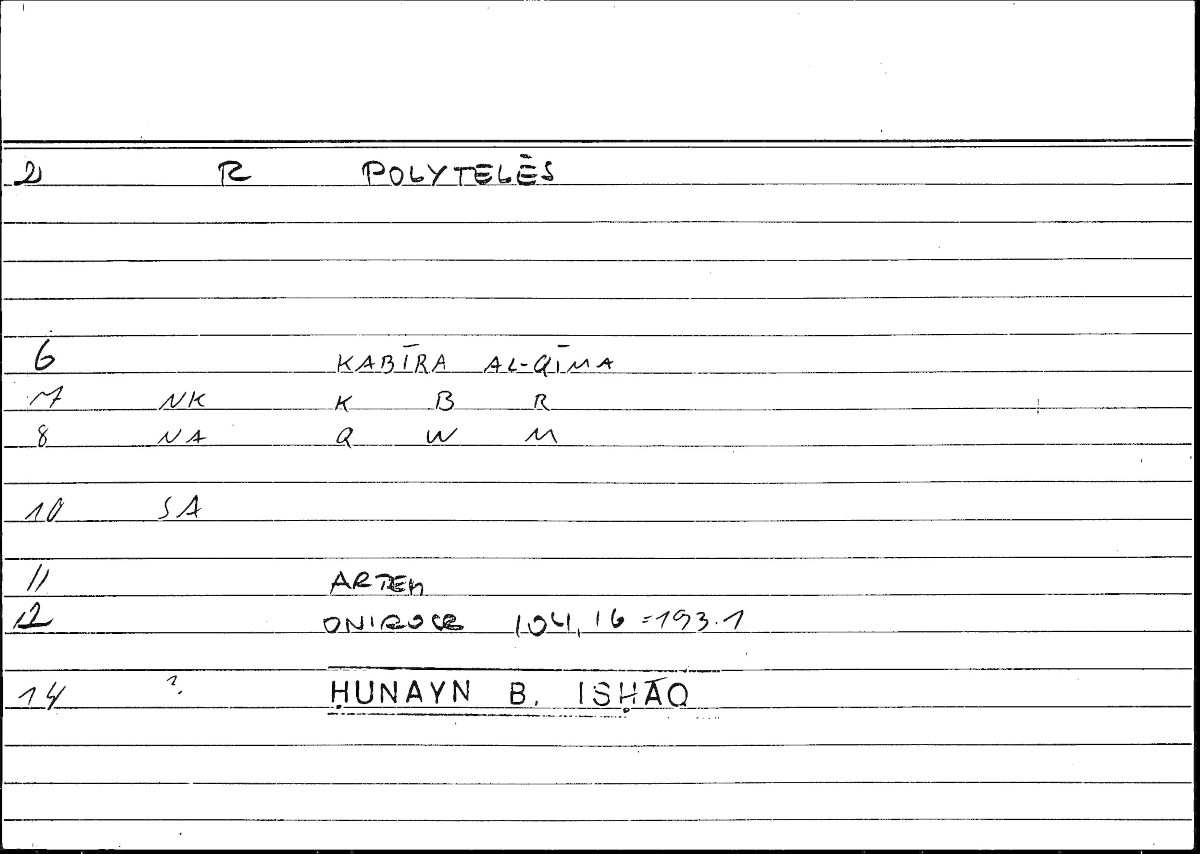 2 R POLYTELĒS
6 KABĪRA AL-QĪMA
7 NK K B R
8 NA Q W M
10 SA
11 ARTEM
12 ONIROCR 104,16 =193.1
14 ?. ḤUNAYN B. ISḤĀQ